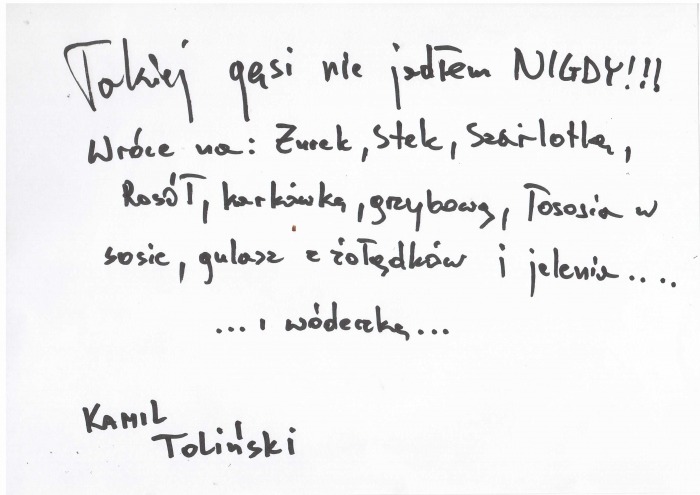 Takiej gęsi nie jadłem NIGDY!!!
Wrócę na: Żurek, Stek, Szarlotkę,
Rosół, karkówkę, grzybową, Łososia w
sosie, gulasz z żołądków i jelenia....
... i wódeczkę...
KAMIL
TOLIŃSKI